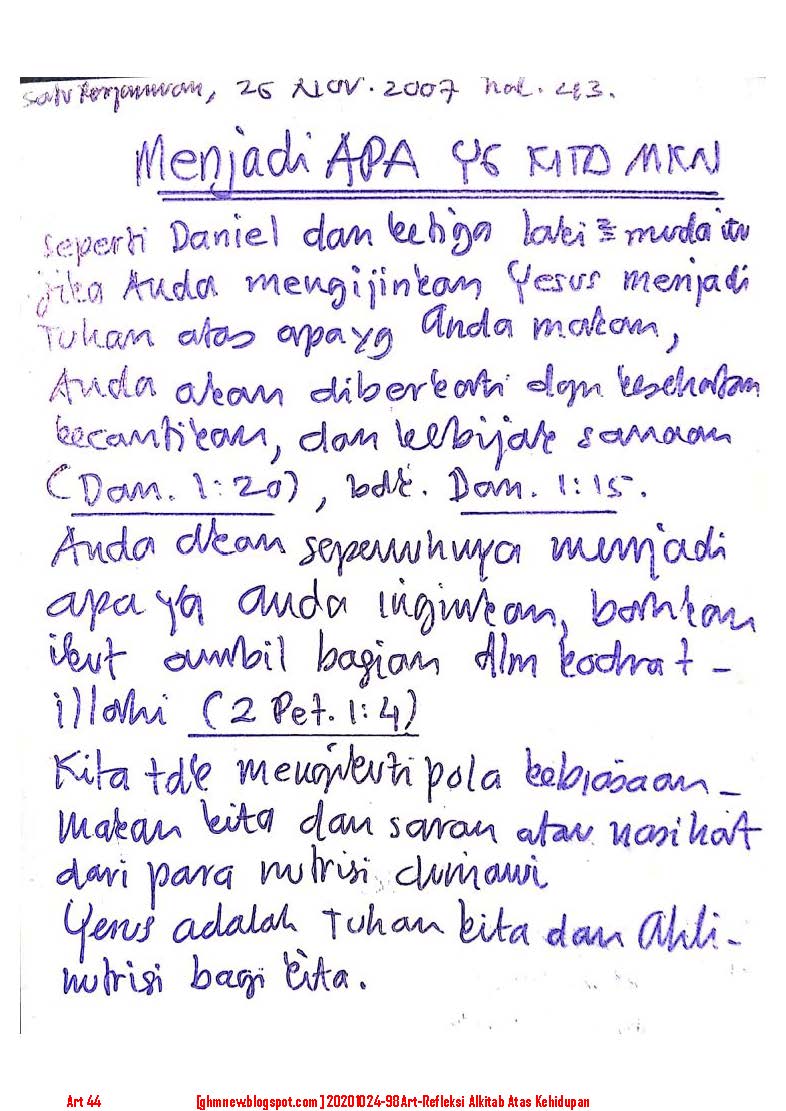 Satu Perjamuan, 26 NOV. 2007 hal. 43.
Menjadi APA YG KITA MKN
seperti Daniel dan ketiga laki² muda itu
jika Anda mengijinkan Yesus menjadi
Tuhan atas apa yg Anda makan,
Anda akan diberkati dgn kesehatan
kecantikan, dan kebijak sanaan
(Dan. 1:20), bdk. Dan. 1:15.
Anda akan sepenuhnya menjadi
apa yg anda inginkan, bahkan
ikut ambil bagian dlm kodrat -
illahi (2 Pet. 1:4)
Kita tdk mengikuti pola kebiasaan -
makan kita dan saran atau nasihat
dari para nutrisi duniawi
Yesus adalah Tuhan kita dan Ahli -
nutrisi bagi kita.
Art 44 [ghmnew.blogspot.com] 20201024-98Art-Refleksi Alkitab Atas Kehidupan